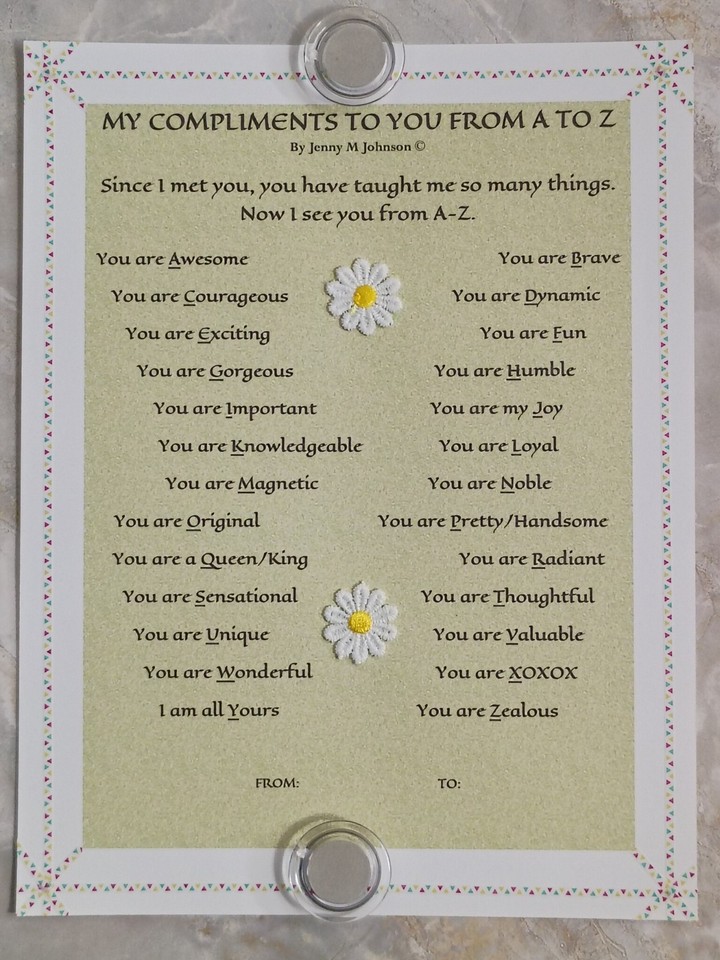 MY COMPLIMENTS TO YOU FROM A TO Z
By Jenny M Johnson ©
Since I met you, you have taught me so many things.
Now I see you from A-Z.
You are Awesome You are Brave
You are Courageous You are Dynamic
You are Exciting You are Fun
You are Gorgeous You are Humble
You are Important You are my Joy
You are Knowledgeable You are Loyal
You are Magnetic You are Noble
You are Original You are Pretty/Handsome
You are a Queen/King You are Radiant
You are Sensational You are Thoughtful
You are Unique You are Valuable
You are Wonderful You are XOXOX
I am all Yours You are Zealous
FROM: TO: